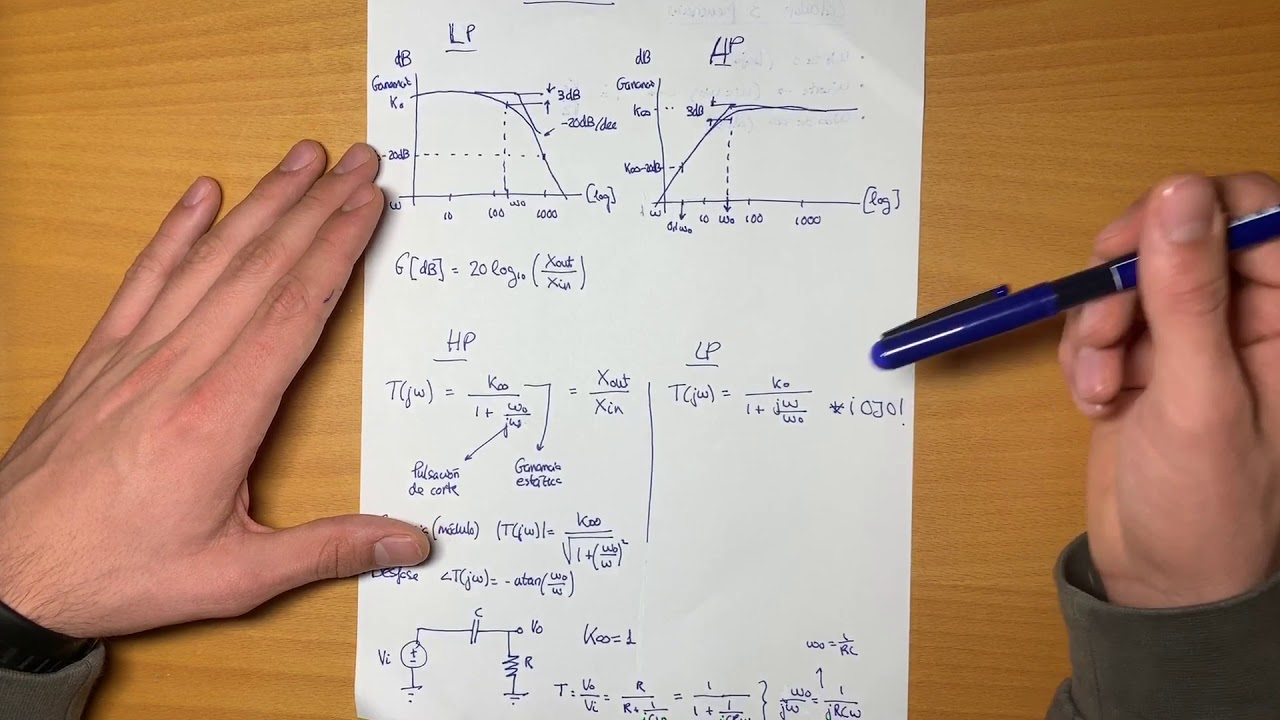 LP
dB
Ganancia
K₀
3dB
-20dB/dec
-20dB
ω 10 100 ω₀ 1000 [log]
HP
dB
Ganancia
K∞
3dB
K∞-20dB
ω 0,1ω₀ 10 ω₀ 100 1000 [log]
G[dB] = 20 log₁₀ (Xout/Xin)
HP
T(jω) = K∞ / (1 + ω₀/jω) = Xout/Xin
Pulsación de corte
Ganancia estática
LP
T(jω) = K₀ / (1 + jω/ω₀) * ¡OJO!
(módulo) |T(jω)| = K∞ / √(1+(ω₀/ω)²)
Desfase ∠T(jω) = -atan(ω₀/ω)
Vi C Vo R
K∞=1
ω₀ = 1/RC
T = Vo/Vi = R / (R + 1/jCω) = 1 / (1 + 1/jCRω) } ω₀/jω = 1/jRCω